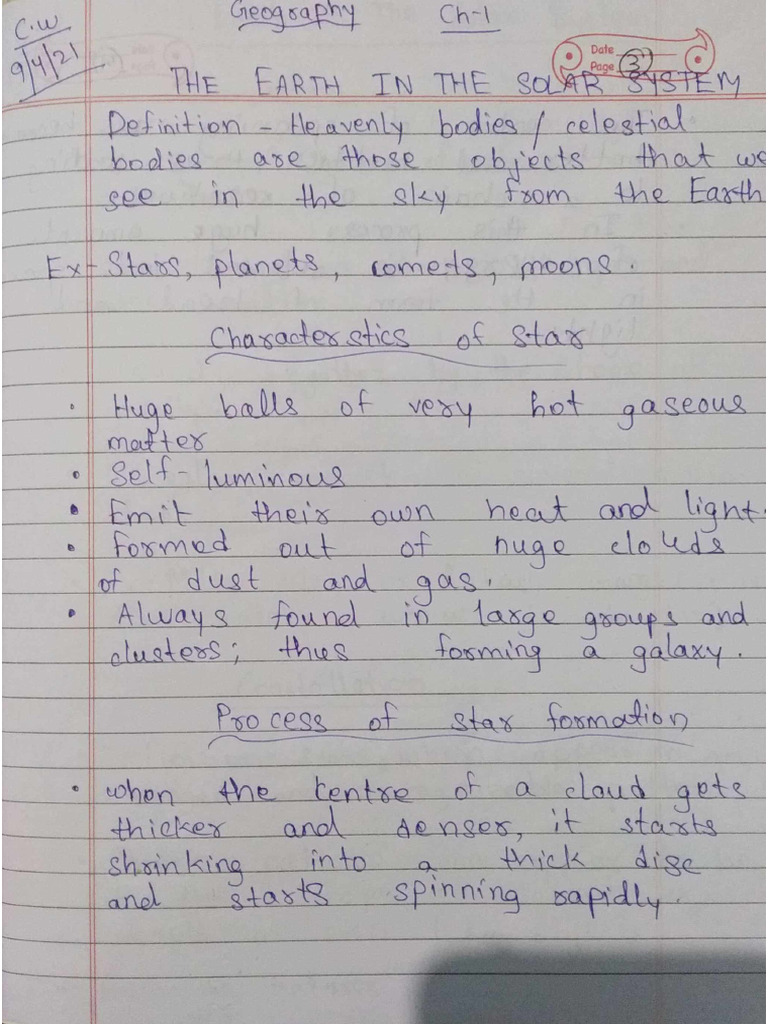 C.W Geography Ch-1
9/4/21
Date
Page 3
THE EARTH IN THE SOLAR SYSTEM
Definition - Heavenly bodies / celestial
bodies are those objects that we
see in the sky from the Earth
Ex- Stars, planets, comets, moons.
Characterstics of star
• Huge balls of very hot gaseous
matter
• Self-luminous
• Emit their own heat and light.
• Formed out of huge clouds
of dust and gas.
• Always found in large groups and
clusters; thus forming a galaxy.
Process of star formation
• when the centre of a cloud gets
thicker and denser, it starts
shrinking into a thick disc
and starts spinning rapidly.